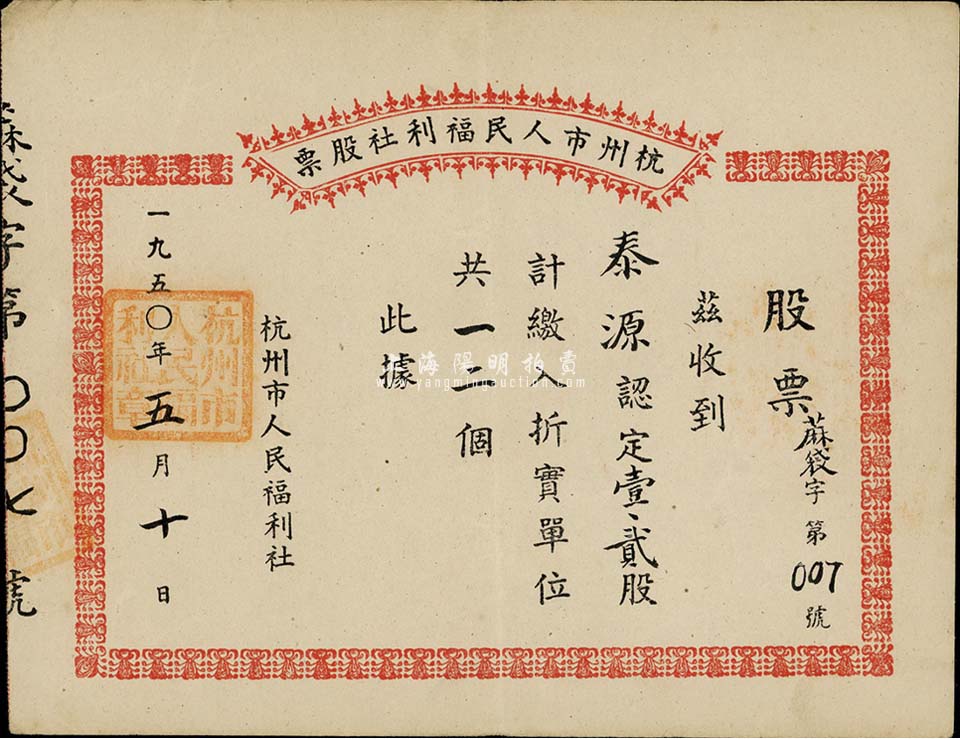 杭州市人民福利社股票
股票
蔴袋字第007號
茲收到
泰源認定壹、貳股
計繳入折實單位
共一、二個
此據
杭州市人民福利社
一九五〇年五月十日
杭州市人民福利社章
蔴袋字第〇〇七號
海陽明拍賣
www.yangmingauction.com